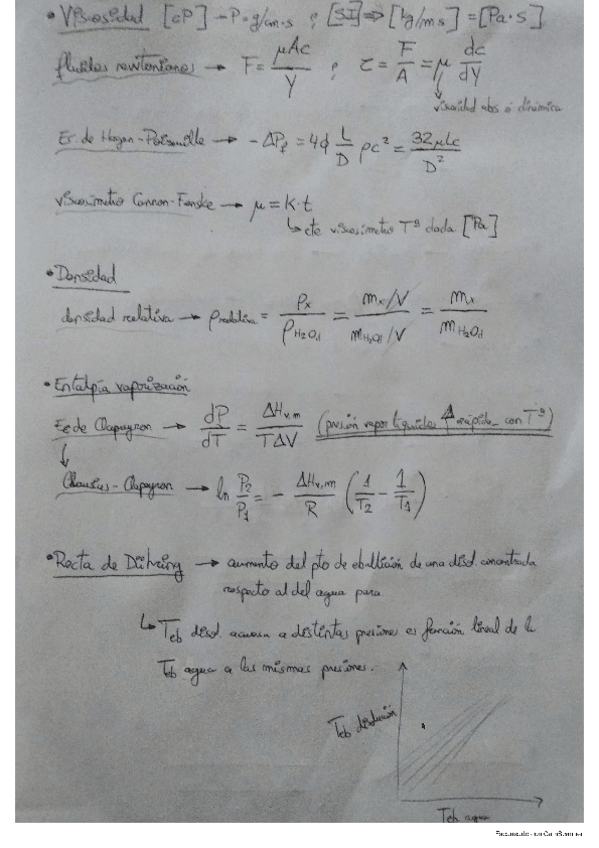 • Viscosidad [cP] → P = g/cm·s ; [SI] ⇒ [kg/m s] = [Pa·s]
fluidos newtonianos → F = μAc/Y ; τ = F/A = μ dc/dY
↳ viscosidad abs o dinámica
Ec. de Hagen-Poiseuille → -ΔPf = 4φ L/D ρc² = 32μLc/D²
viscosímetro Cannon-Fenske → μ = K·t
↳ cte viscosímetro Tª dada [Pa]
• Densidad
densidad relativa → ρrelativa = ρx/ρH₂O,d = mx/V / mH₂O,d/V = mx/mH₂O,d
• Entalpía vaporización
Ec de Clapeyron → dP/dT = ΔHv,m/TΔV (presión vapor líquidos ↑ rápido con Tª)
↓
Clausius-Clapeyron → ln P₂/P₁ = - ΔHv,m/R (1/T₂ - 1/T₁)
• Recta de Dühring → aumento del pto de ebullición de una disol. concentrada
respecto al del agua pura
↳ Teb disol. acuosa a distintas presiones es función lineal de la
Teb agua a las mismas presiones.
Teb disolución
Teb agua